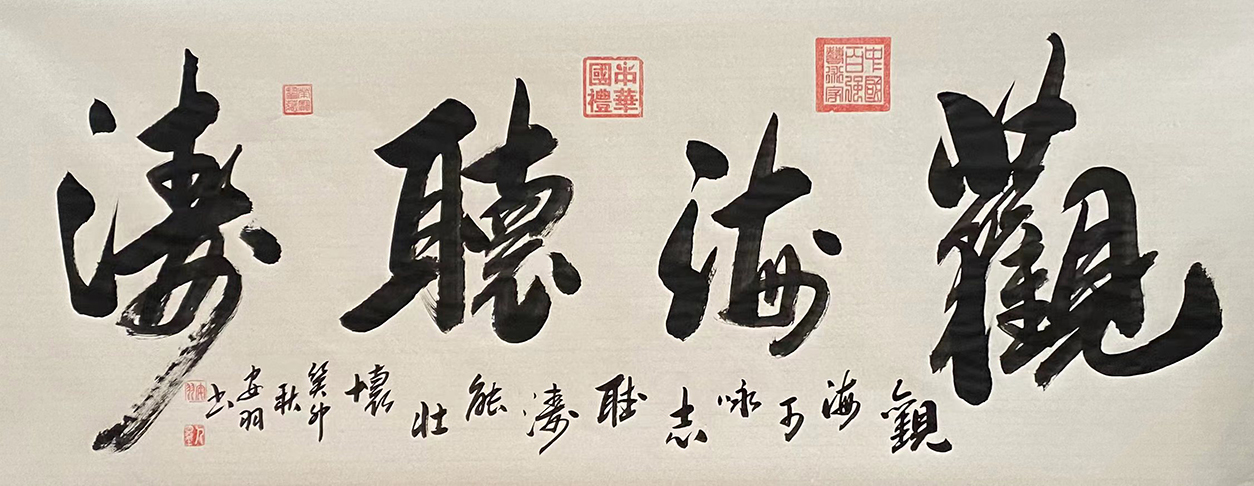 觀海聽濤
觀海可咏志聽濤能壯懷
癸卯秋安羽书
中國百強藝術家
中華國禮